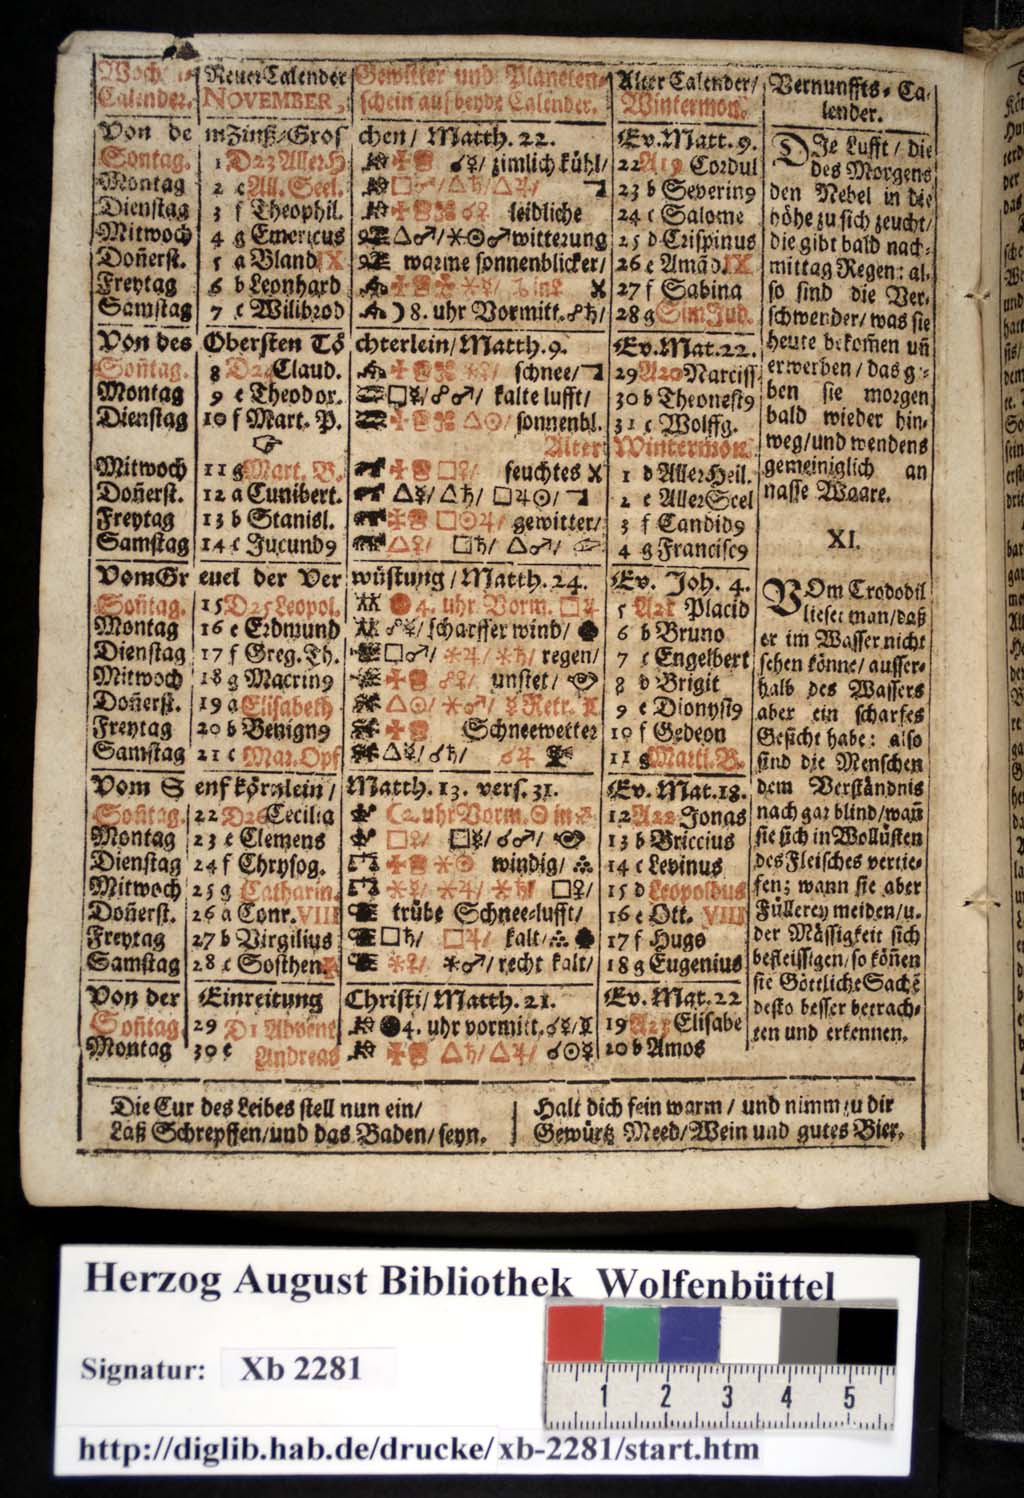 Neuer Calender Gewitter und Planeten- Alter Calender/ Vernunffts- Ca-
Calender. NOVEMBER, schein auf beyde Calender. Wintermon. lender.
Von de m Zinß-Gros chen/ Matth. 22. Ev. Matt. 9.
Sontag. 1 D23 Aller H ☌☿/ zimlich kühl/ 22 A19 Cordul
Montag 2 e All. Seel. 23 b Severin9
Dienstag 3 f Theophil. ☌♀ leidliche 24 c Salome
Mitwoch 4 g Emericus △♂/ ⚹☉♂ witterung 25 d Crispinus
Doñerst. 5 a Bland IX warme sonnenblicker/ 26 e Amãd. IX
Freytag 6 b Leonhard 27 f Sabina
Samstag 7 c Wilibrod ☽ 8. uhr Vormitt. ☍♄/ 28 g Sim Jud.
Von des Obersten Tö chterlein/ Matth. 9. Ev. Mat. 22.
Sontag. 8 D24 Claud. schnee/ 29 A20 Narciss.
Montag 9 e Theodor. □☿/ ☍♂/ kalte lufft/ 30 b Theonest9
Dienstag 10 f Mart. P. △☉/ sonnenbl. 31 c Wolffg.
☞ Alter Wintermon.
Mitwoch 11 g Mart. B. □♀/ feuchtes 1 d Aller Heil.
Doñerst. 12 a Cunibert. △☿/ △♄/ □♃☉/ 2 e Aller Seel
Freytag 13 b Stanisl. □☉♃/ gewitter/ 3 f Candid9
Samstag 14 c Jucund9 △♀/ □♄/ △♂/ 4 g Francisc9
Vom Gr euel der Ver wüstung/ Matth. 24. Ev. Joh. 4.
Sontag. 15 D25 Leopol. 4. uhr Vorm. □♃ 5 A21 Placid
Montag 16 e Erdmund ☍☿/ scharffer wind/ 6 b Bruno
Dienstag 17 f Greg. Th. □♂/ ⚹♃/ ⚹♄/ regen/ 7 c Engelbert
Mitwoch 18 g Macrin9 ☍♀/ unstet/ 8 d Brigit
Doñerst. 19 a Elisabeth △☉/ ⚹♂/ ☿ Retr. 9 e Dionys9
Freytag 20 b Benign9 Schneewetter 10 f Gedeon
Samstag 21 c Mar. Opf △☿/ ☌♄/ ☌♃ 11 g Marti. B.
Vom S enfkörnlein/ Matth. 13. vers. 31. Ev. Mat. 18.
Sontag. 22 D26 Cecilia ☾ 2. uhr Vorm. ☉ in ♐ 12 A22 Jonas
Montag 23 e Clemens □♀/ □☿/ ☌♂/ 13 b Briccius
Dienstag 24 f Chrysog. ⚹☉ windig/ 14 c Levinus
Mitwoch 25 g Catharin. ⚹☿/ ⚹♃/ ⚹♄/ □♀/ 15 d Leopoldus
Doñerst. 26 a Conr. VIII trübe Schnee-lufft/ 16 e Ott. VIII
Freytag 27 b Virgilius □♄/ □♃/ kalt/ 17 f Hugo
Samstag 28 c Sosthen. ⚹♀/ ⚹♂/ recht kalt/ 18 g Eugenius
Von der Einreitung Christi/ Matth. 21. Ev. Mat. 22
Sontag 29 D1 Advent 4. uhr vormitt. ☌☿/ 19 A23 Elisabe
Montag 30 e Andreas △♄/ △♃/ ☌☉☿ 20 b Amos
DIe Lufft/ die
des Morgens
den Nebel in die
höhe zu sich zeucht/
die gibt bald nach-
mittag Regen: al-
so sind die Ver-
schwender/ was sie
heute bekom̃en uñ
erwerben/ das ge-
ben sie morgen
bald wieder hin-
weg/ und wendens
gemeiniglich an
nasse Waare.
XI.
VOm Crododil
lieset man/ daß
er im Wasser nicht
sehen könne/ ausser-
halb des Wassers
aber ein scharfes
Gesicht habe: also
sind die Menschen
dem Verständnis
nach gar blind/ wañ
sie sich in Wollüsten
des Fleisches vertie-
fen; wann sie aber
Füllerey meiden/ u.
der Mässigkeit sich
befleissigen/ so köñen
sie Göttliche Sache
desto besser betrach-
ten und erkennen.
Die Cur des Leibes stell nun ein/
Laß Schrepffen/ und das Baden/ seyn.
Halt dich fein warm/ und nimm zu dir
Gewürtz Meed/ Wein und gutes Bier.
Herzog August Bibliothek Wolfenbüttel
Signatur: Xb 2281
1 2 3 4 5
http://diglib.hab.de/drucke/xb-2281/start.htm